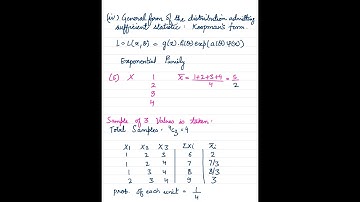 (iv) General form of the distribution admitting
sufficient statistic. Koopman's form
L = L(x, θ) = g(x). h(θ) exp{a(θ) ψ(x)}
Exponential Family
(5) X 1 x̄ = 1+2+3+4 / 4 = 5 / 2
2
3
4
Sample of 3 Values is taken.
Total Samples = ⁴C₃ = 4
X₁ X₂ X₃ ΣXi x̄i
1 2 3 6 2
1 2 4 7 7/3
1 3 4 8 8/3
2 3 4 9 3
prob. of each unit = 1 / 4